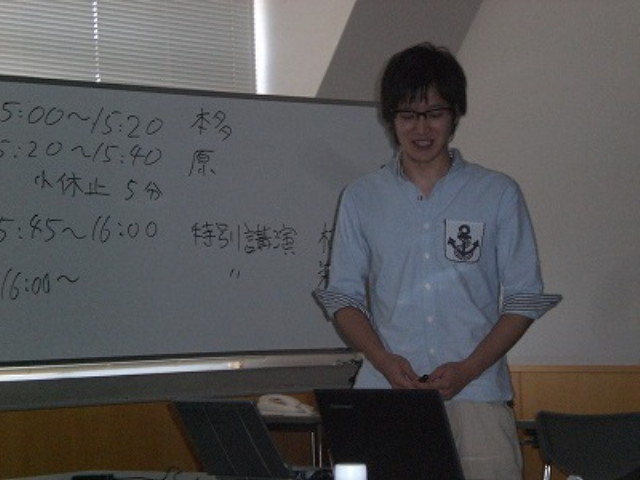 5:00～15:20 本多
5:20～15:40 原
小休止 5分
5:45～16:00 特別講演
16:00～ 〃